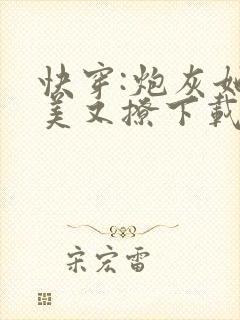 快穿:炮灰她
美又撩下载
宋宏雷